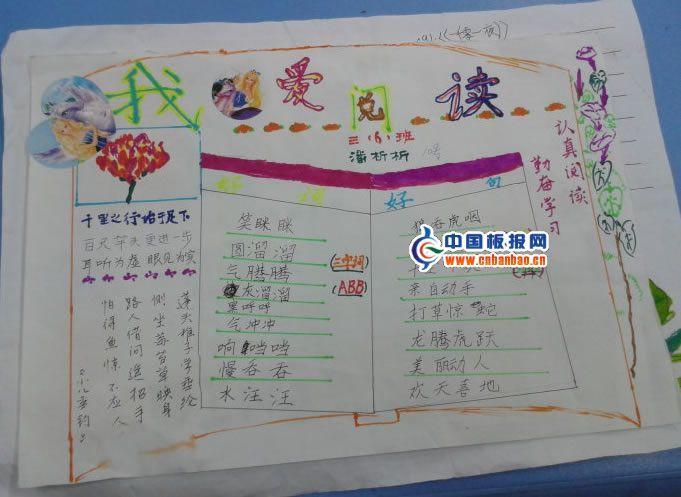 我爱阅读
三(6)班
潘析析
认真阅读
勤奋学习
千里之行始于足下
百尺竿头更进一步
耳听为虚 眼见为实
蓬头稚子学垂纶
侧坐莓苔草映身
路人借问遥招手
怕得鱼惊不应人
《小儿垂钓》
好词
笑眯眯
圆溜溜
气腾腾
灰溜溜
黑呼呼
气冲冲
响当当
慢吞吞
水汪汪
(三字词)
(ABB)
好句
狼吞虎咽
亲自动手
打草惊蛇
龙腾虎跃
美丽动人
欢天喜地
中国板报网
www.cnbanbao.cn